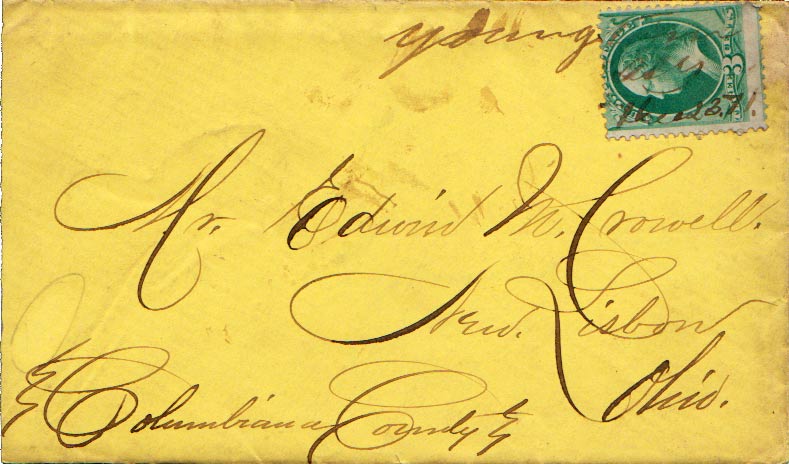 young
23.71.
Mr. Edwin M. Crowell.
New. Lisbon
Ohio.
Columbiana County